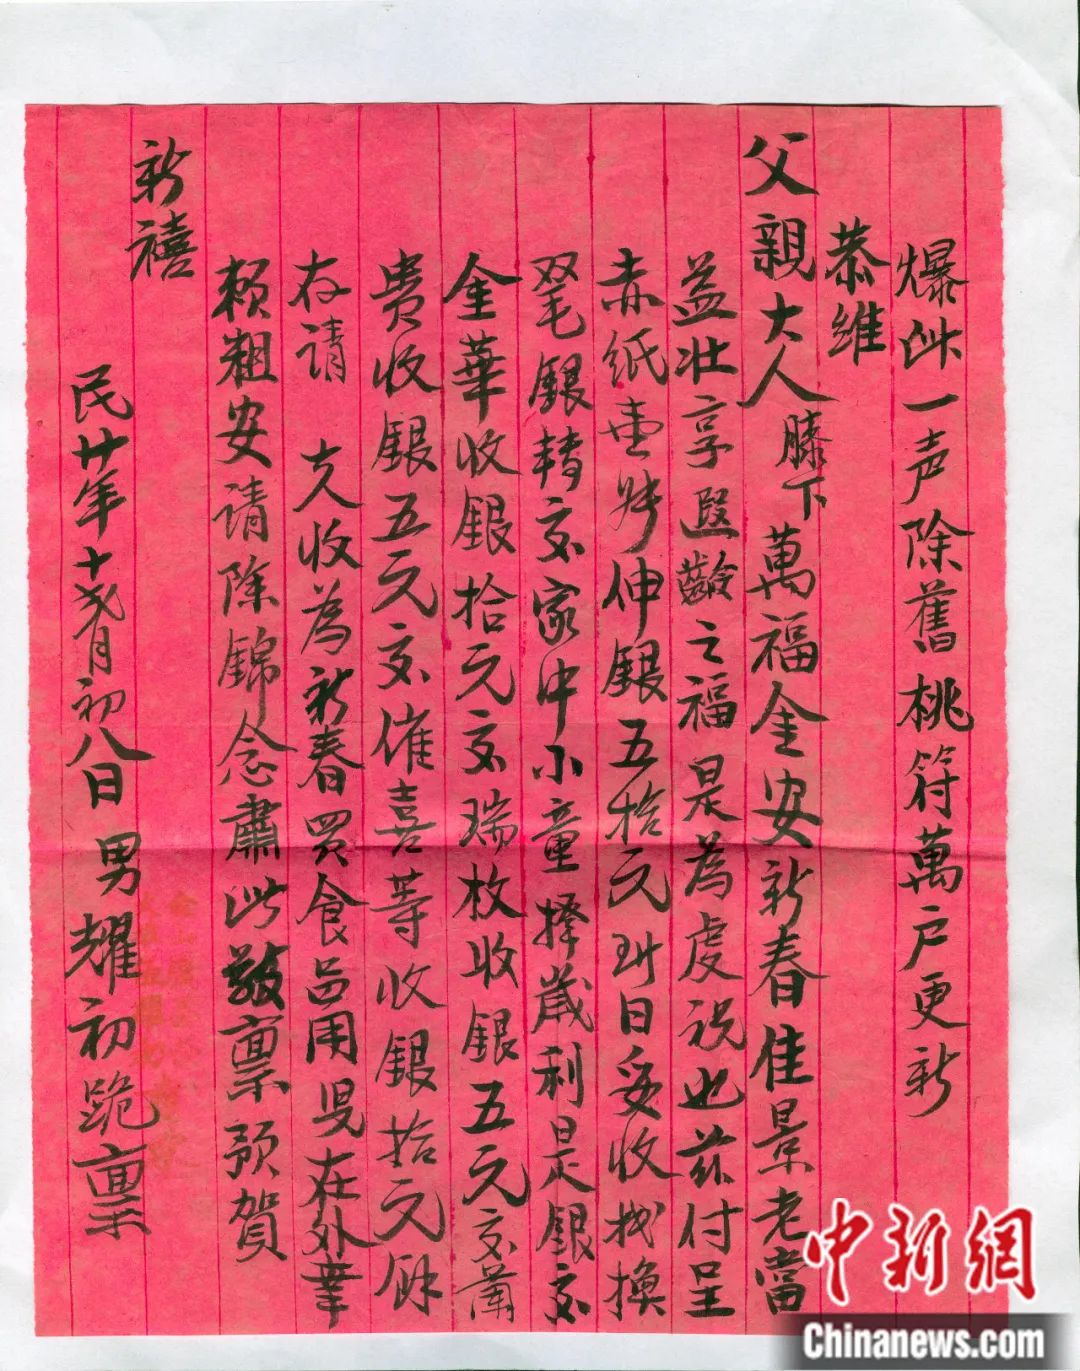 爆竹一声除舊桃符萬户更新
恭维
父親大人膝下萬福金安新春佳景老當
益壯享遐齡之福是為虔祝也茲付呈
赤纸壹封伸銀五拾元到日妥收找換
双毛銀轉交家中小童擇歲利是銀交
金華收銀拾元交瑞枚收銀五元交蘭
贵收銀五元交催喜等收銀拾元餘
存请 大人收為新春買食品用旻在外幸
賴粗安请除錦念肅此敬禀预賀
新禧
民廿年十弍月初八日男耀初跪禀
中新網
Chinanews.com